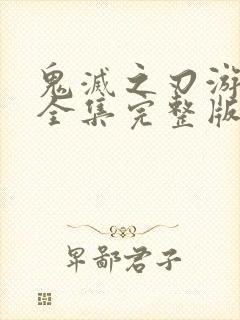 鬼滅之刃游
全集完整版
卑鄙君子